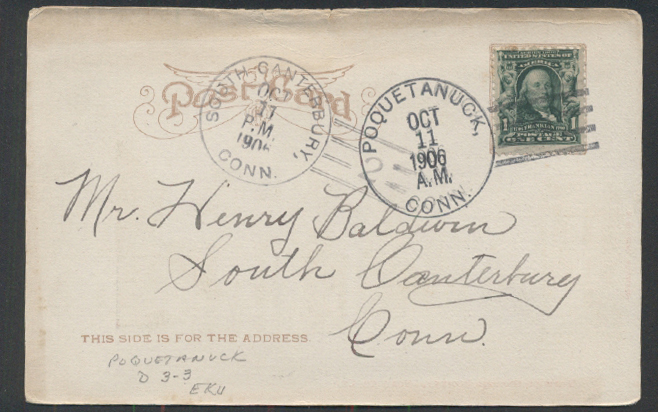 Post Card
SOUTH CANTERBURY,
OCT
11
P.M.
1906
CONN.
POQUETANUCK,
OCT
11
1906
A.M.
CONN.
UNITED STATES OF
AMERICA
1 1
POSTAGE
ONE CENT
Mr. Henry Baldwin
South Canterbury
Conn.
THIS SIDE IS FOR THE ADDRESS
POQUETANUCK
D 3-3
EKU